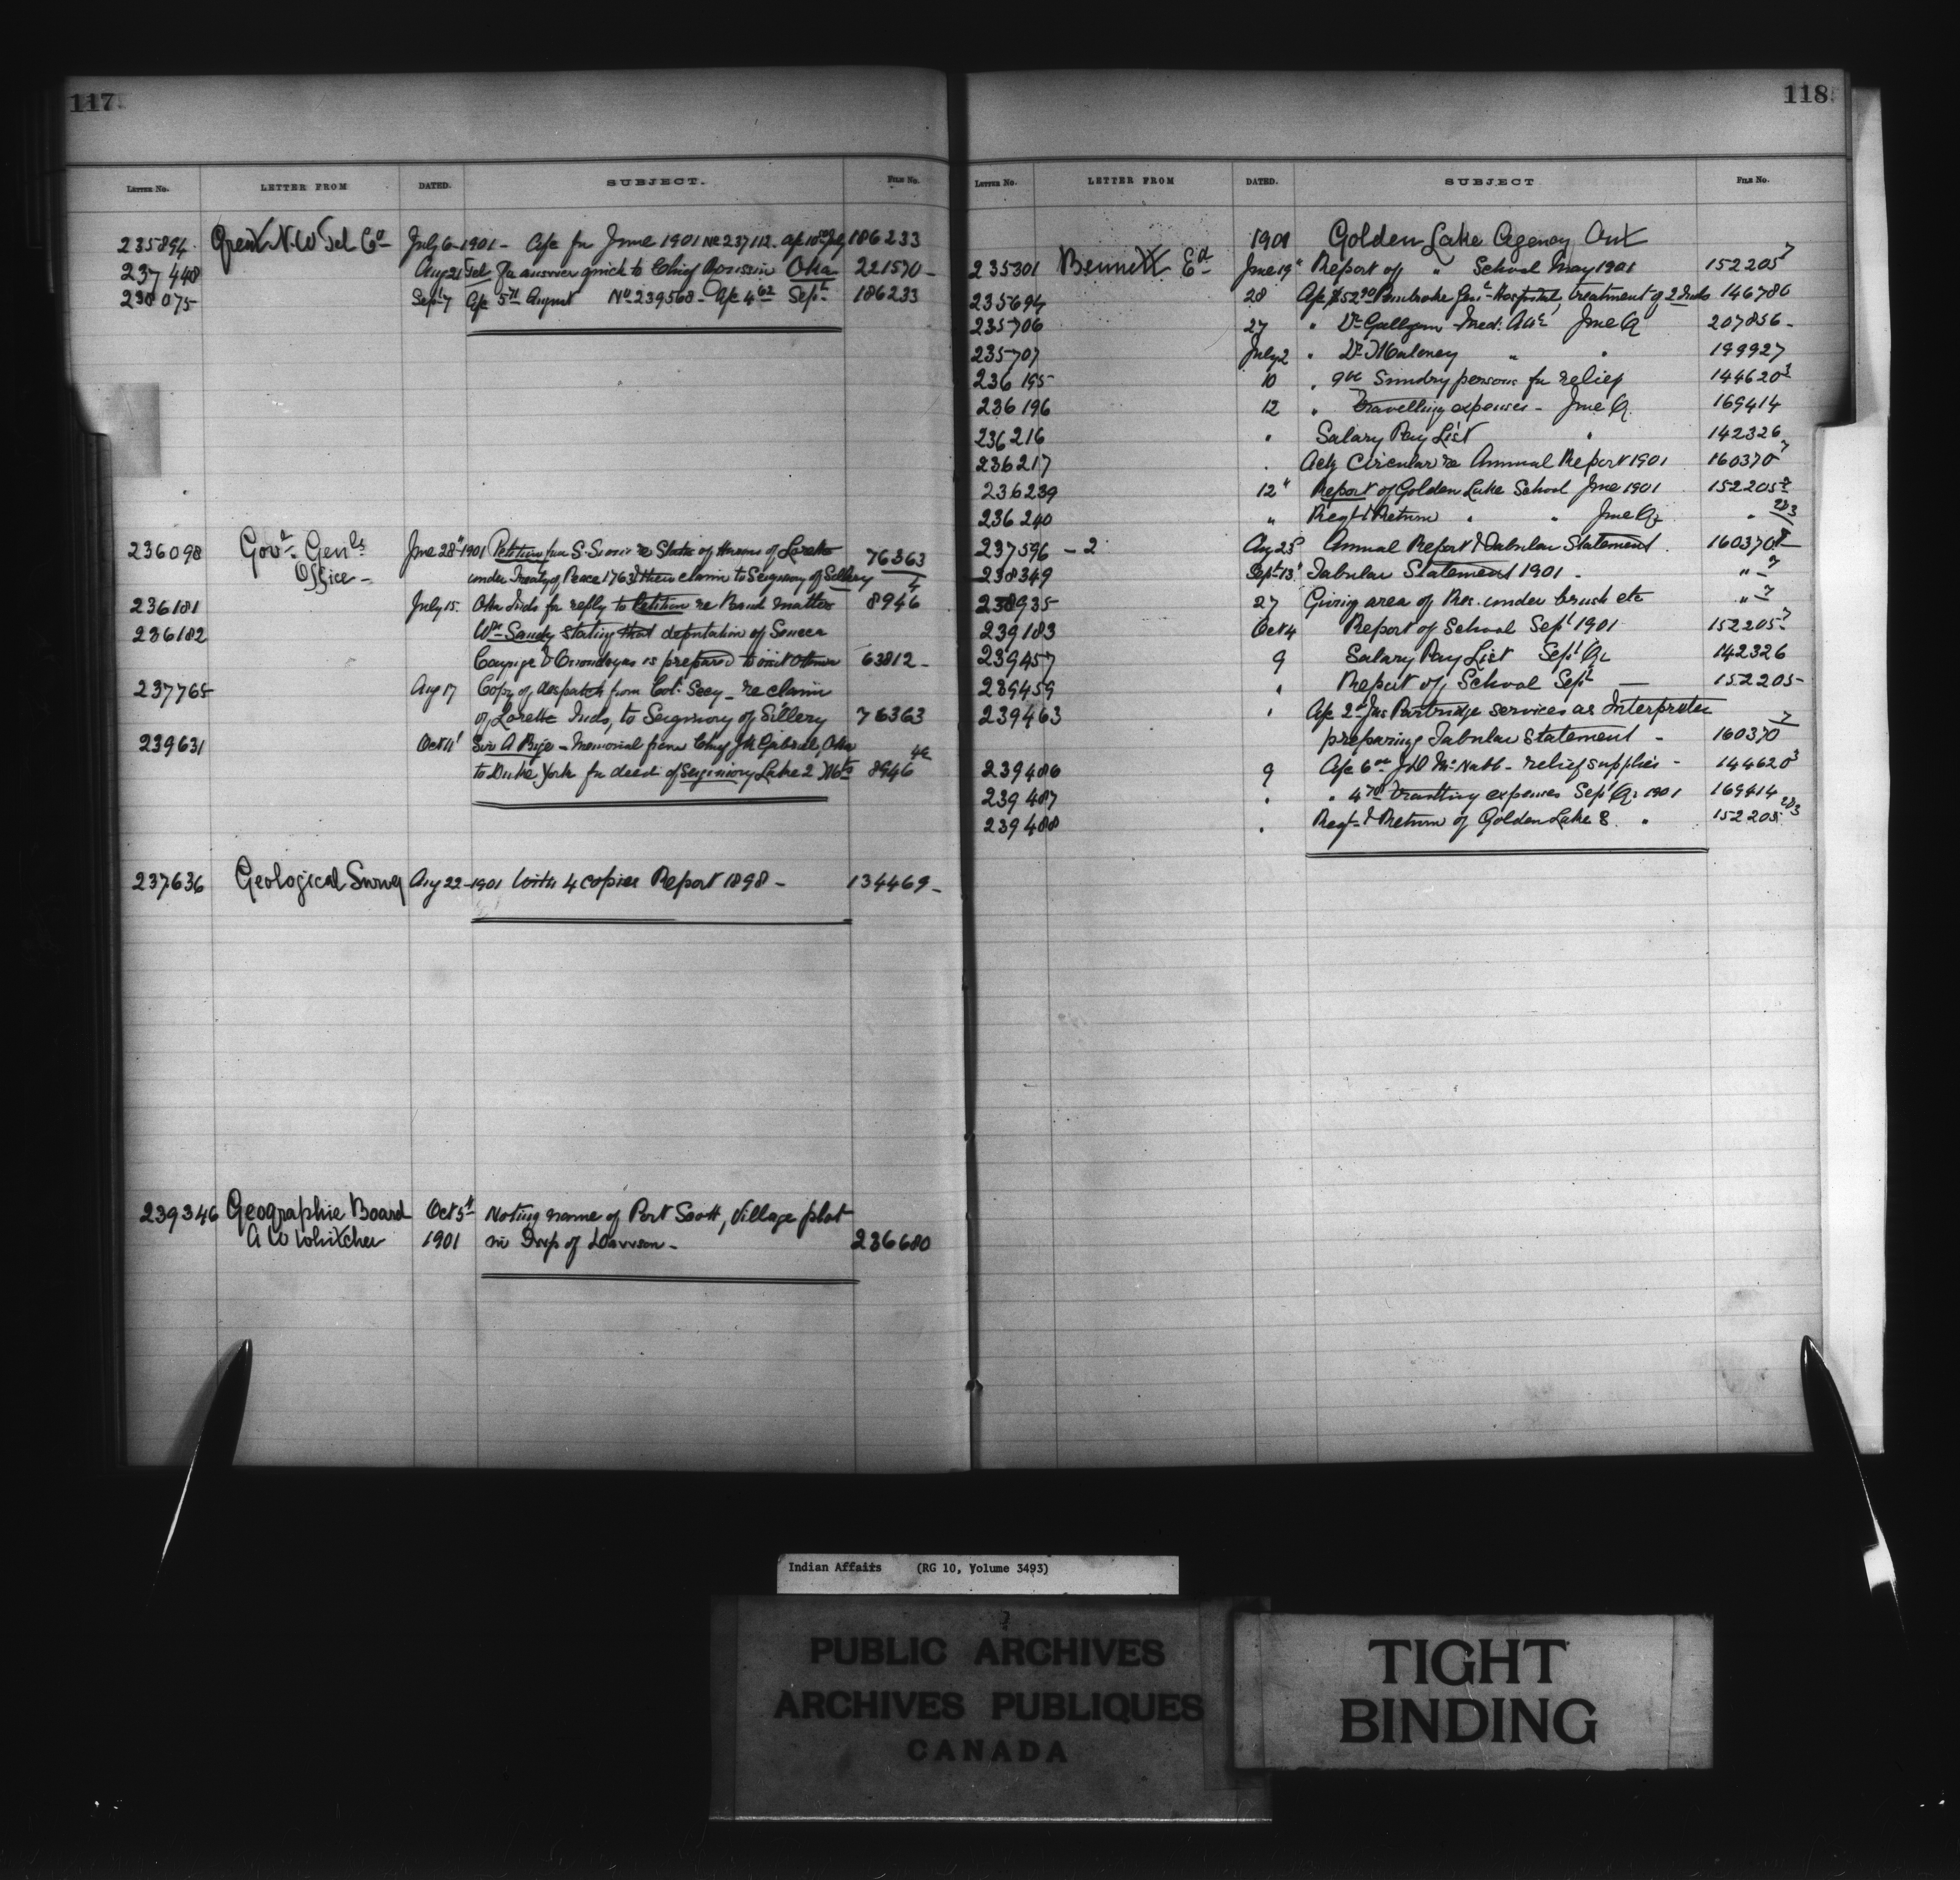 117.
LETTER No. LETTER FROM DATED. SUBJECT. FILE No.
235894 Great N.W Tel Co July 6-1901- a/c for June 1901 No 237112. a/c July 186233
237448 Aug 21 Tel for answer quick to Chief Oka 221570-
238075 Sept 7 a/c 5 71 August No 239568- a/c 4 62 Sept. 186233
236098 Govr. Genls June 28" 1901 Petition from S. re State of Hurons of Lorette 76363
Office- under Treaty of Peace 1763 & their claim to Seigniory of Sillery 4
236181 July 15. Oka Inds for reply to Petition re Band matters 8946
236182 Wm Sandy stating that deputation of Seneca
Cayuga & Onondagas is prepared to visit Ottawa 63812-
237765 Aug 17 Copy of despatch from Col: Secy- re claim
of Lorette Inds, to Seigniory of Sillery 76363
239631 Oct 11' Sir A - Memorial from Chief Gabriel, Oka
to Duke York for deed of Seigniory Lake 2 Mts 8946
237636 Geological Survey Aug 22-1901 With 4 copies Report 1898- 134469-
239346 Geographic Board Oct 5" Noting name of Port Scott, Village plot
A W Whitcher 1901 in Twp of - 236680
118.
LETTER No. LETTER FROM DATED. SUBJECT FILE No.
1901 Golden Lake Agency Ont
235301 Bennett Ed June 19" Report of " School May 1901 152205 7
235694 28 a/c $52 90 Pembroke Genl Hospital, treatment of 2 Inds 146786
235706 27 " Dr Galligan Med: Atte June Qr 207856-
235707 July 2 " Dr Maloney " " 199927
236195 10 " Sundry persons for relief 144620 3
236196 12 " Travelling expenses- June Qr. 169414
236216 " Salary Pay List " 142326
236217 " Ack Circular re Annual Report 1901 160370 7
236239 12" Report of Golden Lake School June 1901 152205 2
236240 " Reqt & Return " " June Qr " 2&3
237596 - 2 Aug 23 Annual Report & Tabular Statement. 160370
238349 Sept 13' Tabular Statement 1901 - " 7
238935 27 Giving area of Res. under brush etc " 7
239183 Oct 4 Report of School Sept 1901 152205 7
239457 9 Salary Pay List Sept Qr 142326
239459 " Report of School Sept - 152205-
239463 " a/c Jas Partridge services as Interpreter
preparing Tabular Statement - 160370 7
239486 9 a/c 6 00 McNabb- relief supplies - 144620 3
239487 " " 4 70 Travelling expenses Sept Qr 1901 169414
239488 " Reqt & Return of Golden Lake S. " 152205 2&3
Indian Affairs (RG 10, Volume 3493)
PUBLIC ARCHIVES
ARCHIVES PUBLIQUES
CANADA
TIGHT
BINDING